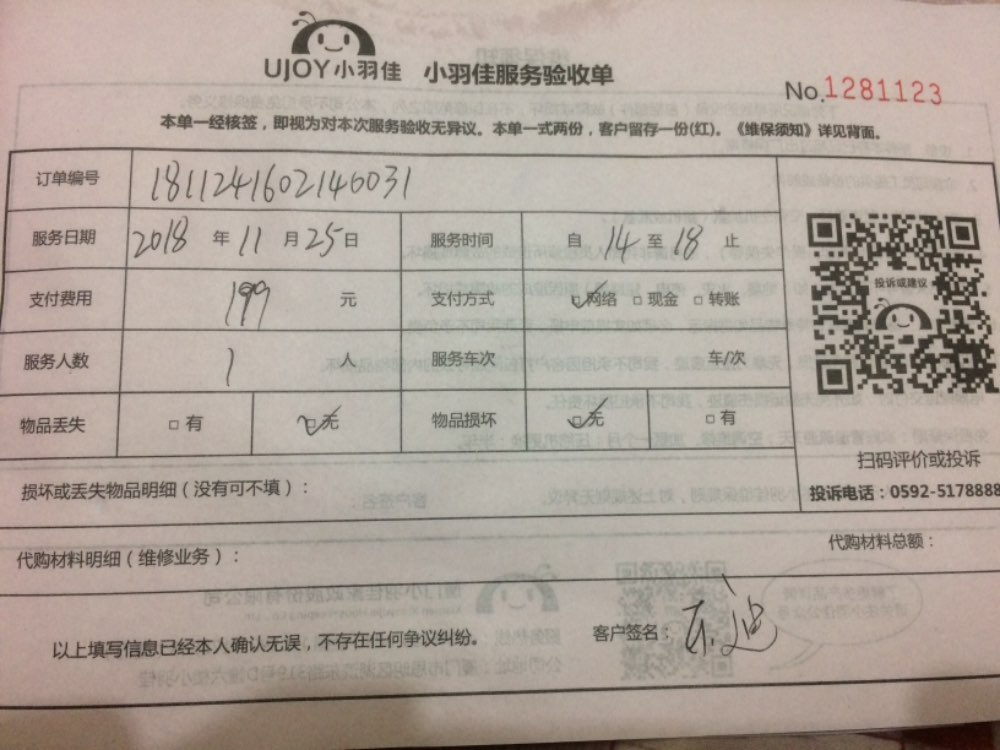 UJOY小羽佳 小羽佳服务验收单
No.1281123
本单一经核签，即视为对本次服务验收无异议。本单一式两份，客户留存一份(红)。《维保须知》详见背面。
订单编号 181124160214​6031
服务日期 2018 年 11 月 25 日 服务时间 自 14 至 18 止
支付费用 199 元 支付方式 ☑网络 □现金 □转账
服务人数 1 人 服务车次 车/次
物品丢失 □有 ☑无 物品损坏 ☑无 □有
投诉或建议
扫码评价或投诉
投诉电话：0592-5178888
损坏或丢失物品明细（没有可不填）：
代购材料明细（维修业务）：
代购材料总额：
以上填写信息已经本人确认无误，不存在任何争议纠纷。
客户签名：